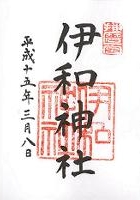 伊和神社
平成十五年三月八日